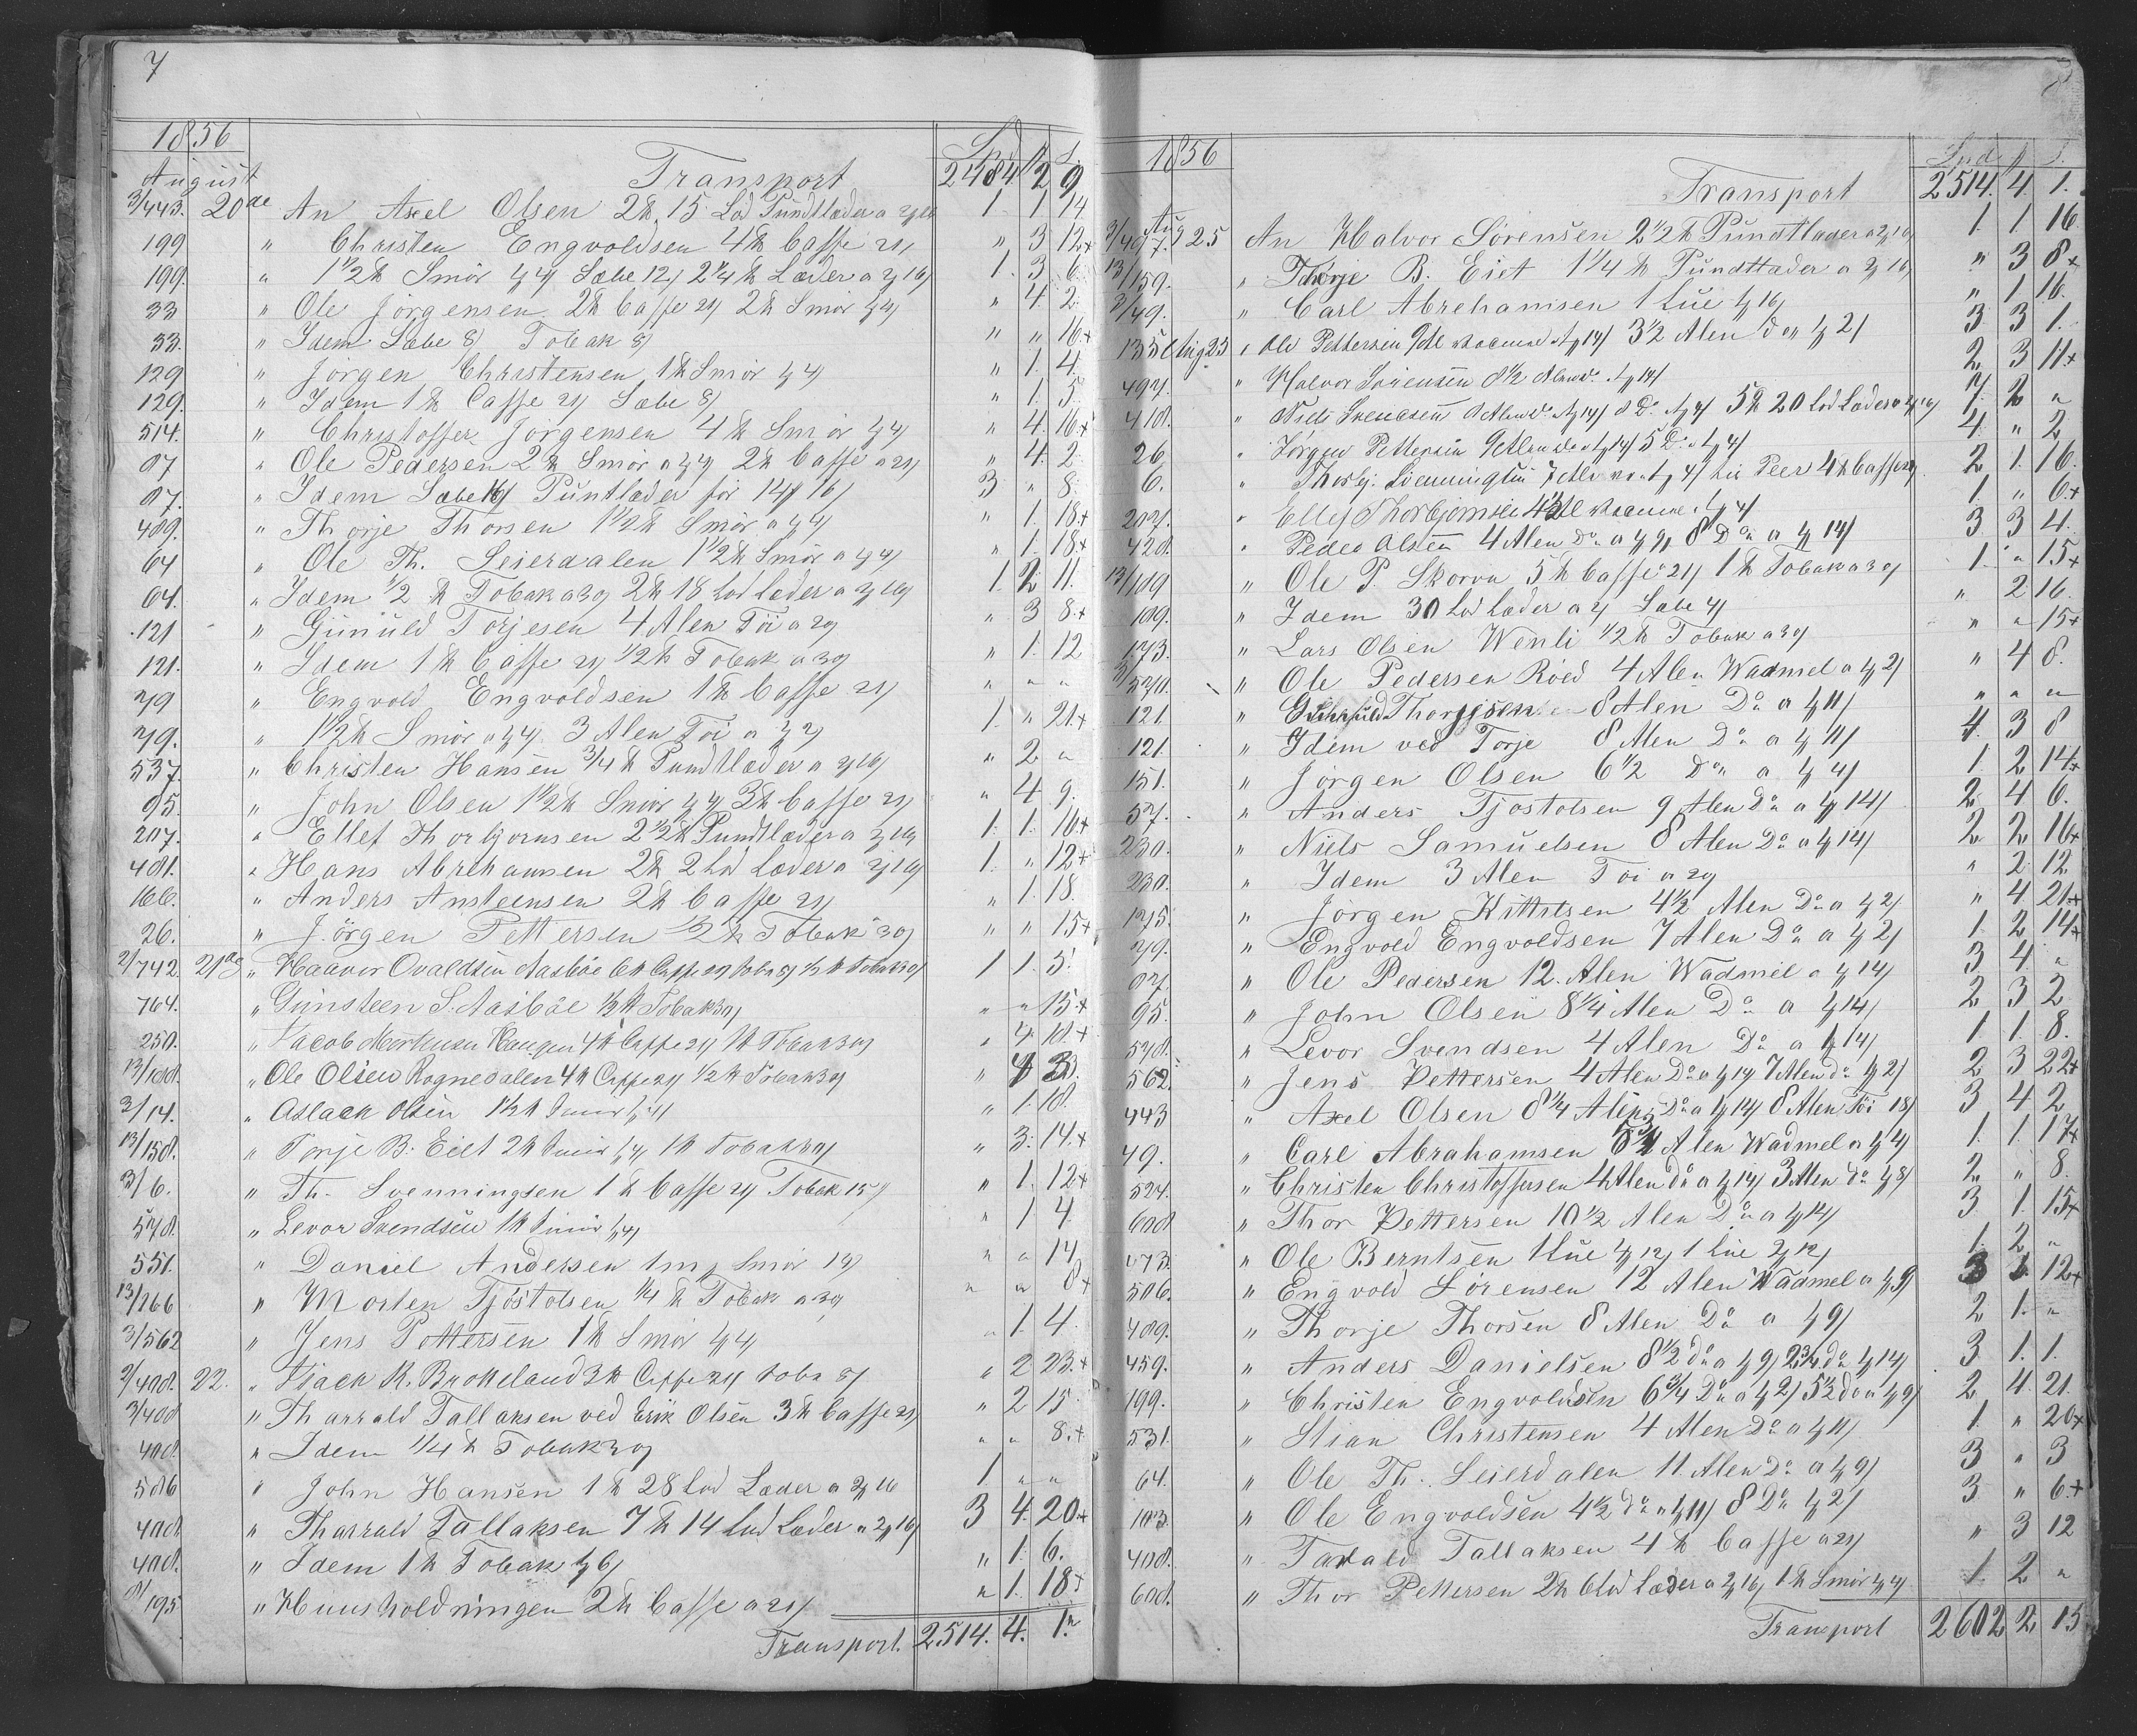 7
1856
August
Spd. 2 S.
Transport 2484. 2 9
3/443. 20de An Axel Olsen 2 ℔ 15 Lod Pundtlæder a 2/16 1. 1 14
199 " Christen Engvoldsen 4 ℔ Caffe 21/ " 3 12+
199. " 1 1/2 ℔ Smör 1/4/ Sæbe 12/ 2 1/4 ℔ Læder a 2/16/ 1. 3 6
33 " Ole Jörgensen 2 ℔ Caffe 21/ 2 ℔ Smör 1/4/ " 4. 2
33. " Idem Sæbe 8/ Tobak 8/ " " 16+
129 " Jörgen Christensen 1 ℔ Smör 1/4/ " 1. 4.
129. " Idem 1 ℔ Caffe 21/ Sæbe 8/ " 1. 5.
514. " Christoffer Jörgensen 4 ℔ Smör 1/4/ " 4. 16+
87 " Ole Pedersen 2 ℔ Smör a 1/4/ 2 ℔ Caffe a 21/ " 4. 2
87. " Idem Sæbe 16/ Puntlæder för 14/ 16/ 3 " 8.
489. " Thorje Thorsen 1 1/2 ℔ Smör a 1/4/ " 1. 18+
64 " Ole Th. Leierdalen 1 1/2 ℔ Smör a 1/4/ " 1. 18+
64. " Idem 1/2 ℔ Tobak a 30/ 2 ℔ 18 Lod Læder a 2/16/ 1. 2 11.
121 " Gunuld Torjesen 4 Alen Töi a 20/ " 3 8+
121. " Idem 1 ℔ Caffe 21/ 1/2 ℔ Tobak a 30/ " 1. 12
79 " Engvold Engvoldsen 1 ℔ Caffe 21/ " " "
79. " 1 1/2 ℔ Smör a 1/4/ 3 Alen Töi a 1/2/ 1. " 21+
537. " Christen Hansen 3/4 ℔ Pundtlæder a 2/16/ " 2 "
95. " John Olsen 1 1/2 ℔ Smör 1/4/ 3 ℔ Caffe 21/ " 4. 9.
207. " Ellef Thorbjornsen 2 1/2 ℔ Pundtlæder a 2/16/ 1. 1. 16+
481. " Hans Abrehamsen 2 ℔ 2 Lod Læder a 2/16/ 1. " 12+
166. " Anders Ansteensen 2 ℔ Caffe 21/ " 1. 18.
26. " Jörgen Pettersen 1/2 ℔ Tobak 30/ " " 15+
2/742 21de " Haaver Ovaldsen Aasböe 6 ℔ Caffe 21/ Toba 8/ 1/2 ℔ Tobak 30/ 1 1. 5.
764. " Gunsteen S. Aasböe 1/2 ℔ Tobak 30/ " " 15+
250. " Jacob Mortensen Haugen 4 ℔ Caffe 21/ 1 ℔ Tobak 30/ " 4. 18+
13/188. " Ole Olsen Rognedalen 4 ℔ Caffe 21/ 1/2 ℔ Tobak 30/ " 4 3.
3/14. " Aslack Olsen 1 1/2 ℔ Smör 1/4/ " 1. 18.
13/158. " Torje B. Eiet 2 ℔ Smör 1/4/ 1 ℔ Tobak 30/ " 3. 14+
3/6. " Th. Svenningsen 1 ℔ Caffe 21/ Tobak 15/ " 1. 12+
578. " Levor Svendsen 1 ℔ Smör 1/4/ " 1 4
551. " Daniel Andersen 1 m/ Smör 19/ " " 14
13/266 " Morten Tjöstolsen 1/4 ℔ Tobak a 30/ " " 8+
3/562 " Jens Pettersen 1 ℔ Smör 1/4/ " 1. 4.
2/408. 22. " Siack R. Brokeland 3 ℔ Caffe 21/ Toba 8/ " 2 23+
3/408 " Tharrald Tallaksen ved Erik Olsen 3 ℔ Caffe 21/ " 2 15
408. " Idem 1/4 ℔ Tobak 30/ " " 8+
586 " John Hansen 1 ℔ 28 Lod Læder a 2/16 1 " "
408. " Tharrald Tallaksen 7 ℔ 14 Lod Læder a 2/16/ 3 4. 20+
408. " Idem 1 ℔ Tobak 1/6/ " 1. 6.
8/195 " Huusholdningen 2 ℔ Caffe a 21/ " 1. 18+
Transport. 2514. 4. 1.
8
1856
Spd. 2 S.
Transport 2514. 4. 1.
3/497. Aug 25 An Halvor Sörensen 2 1/2 ℔ Pundtlæder a 2/16/ 1. 1 16
13/159. " Thorje B. Eiet 1 1/4 ℔ Pundtlæder a 2/16/ " 3 8+
3/49. " Carl Abrehamsen 1 Lue 1/16/ " 1 16.
135 Aug 23 " Ole Pettersen 3 1/2 Alen Do 1/2/ 3 3 1.
497. " Halvor Sörensen 8 1/2 Alen Do a 1/14/ 2 3 11+
418. " Niels Svendsen 5 ℔ 20 Lod Læder a 2/16/ 7. 2 "
26 " Jörgen Pettersen 5 Do a 1/4/ 4. " 2
6. " Thorbj. Svenningsen 4 ℔ Caffe 21/ 2 1. 16.
207. " Ellef Thorbjornsen 1. " 6+
428. " Peder Olsen 4 Alen Do a 1/9/ 8 Do a 1/14/ 3 3 4.
13/189 " Ole P. Skorva 5 ℔ Caffe 21/ 1 ℔ Tobak a 30/ 1. " 15+
189. " Idem 30 Lod Læder a 2/ Sæbe 4/ " 2 16.
173. " Lars Olsen Wenli 1/2 ℔ Tobak a 30/ " " 15+
3/520. " Ole Pedersen Röed 4 Alen Wadmel a 1/2/ " 4 8.
121. " Gunuld Thorjesen 8 Alen Do a 1/11/ " " "
121. " Idem ved Torje 8 Alen Do a 1/11/ 4. 3 8
151. " Jörgen Olsen 6 1/2 Do a 1/4/ 1. 2 14+
57. " Anders Tjostolsen 9 Alen Do a 1/14/ 2 4 6.
230. " Niels Samuelsen 8 Alen Do a 1/14/ 2 2 16+
230. " Idem 3 Alen Töi a 20/ " 2 12
175. " Jörgen Kittilsen 4 1/2 Alen Do a 1/2/ " 4 21+
79. " Engvold Engvoldsen 7 Alen Do a 1/2/ 1. 2 14+
87. " Ole Pedersen 12. Alen Wadmel a 1/14/ 3 4. "
95. " John Olsen 8 1/4 Alen Do a 1/14/ 2 3 2
578. " Levor Svendsen 4 Alen Do a 1/14/ 1 1. 8.
562. " Jens Pettersen 4 Alen Do a 1/14/ 7 Alen do 1/2/ 2 3 22+
443 " Axel Olsen 8 1/4 Alen Do a 1/14/ 8 Alen Töi 18/ 3 4 2
49. " Carl Abrahamsen Alen Wadmel a 1/4/ 1. 1. 17+
524. " Christen Christoffersen 4 Alen do a 1/14/ 3 Alen do 1/8/ 2 " 8.
608 " Thor Pettersen 10 1/2 Alen Do a 1/14/ 3 1. 15+
673. " Ole Berntsen 1 Lue 1/12/ 1 Lue 2/12/ 1. 2 "
506. " Engvold Sörensen 12 Alen Wadmel a 1/9/ 3 1. 12+
489. " Thorje Thorsen 8 Alen Do a 1/9/ 2 1. "
459. " Anders Danielsen 8 1/2 do a 1/9/ 2 3/4 do 1/14/ 3 1. 1.
199. " Christen Engvoldsen 6 3/4 Do a 1/2/ 5 1/2 do a 1/9/ 2 4. 21.
531. " Stian Christensen 4 Alen Do a 1/11/ 1. " 20+
64. " Ole Th. Leierdalen 11. Alen Do a 1/9/ 3 " 3
103. " Ole Engvoldsen 4 1/2 do a 1/11/ 8 Do 1/2/ 3 " 6+
408. " Tarald Tallaksen 4 ℔ Caffe a 21/ " 3 12
608. " Thor Pettersen 2 ℔ 6 Lod Læder a 2/16/ 1 ℔ Smör 1/4/ 1. 2 "
Transport 2602 2 15